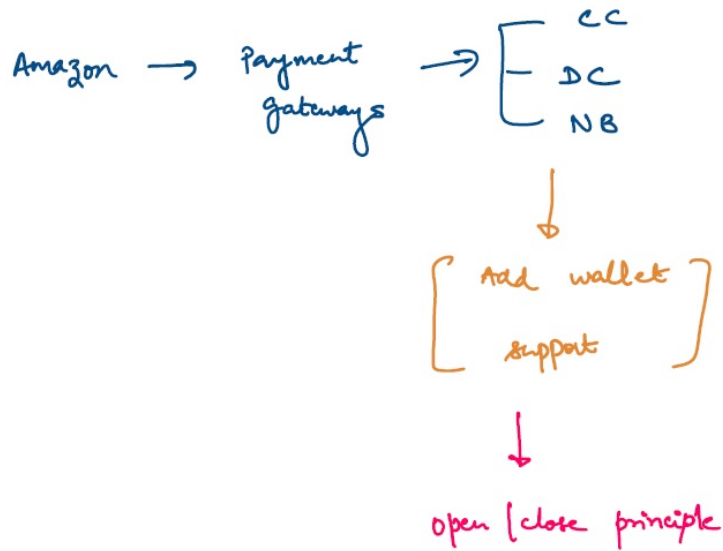 Amazon → Payment
gateways
→ CC
DC
NB
Add wallet
support
open / close principle